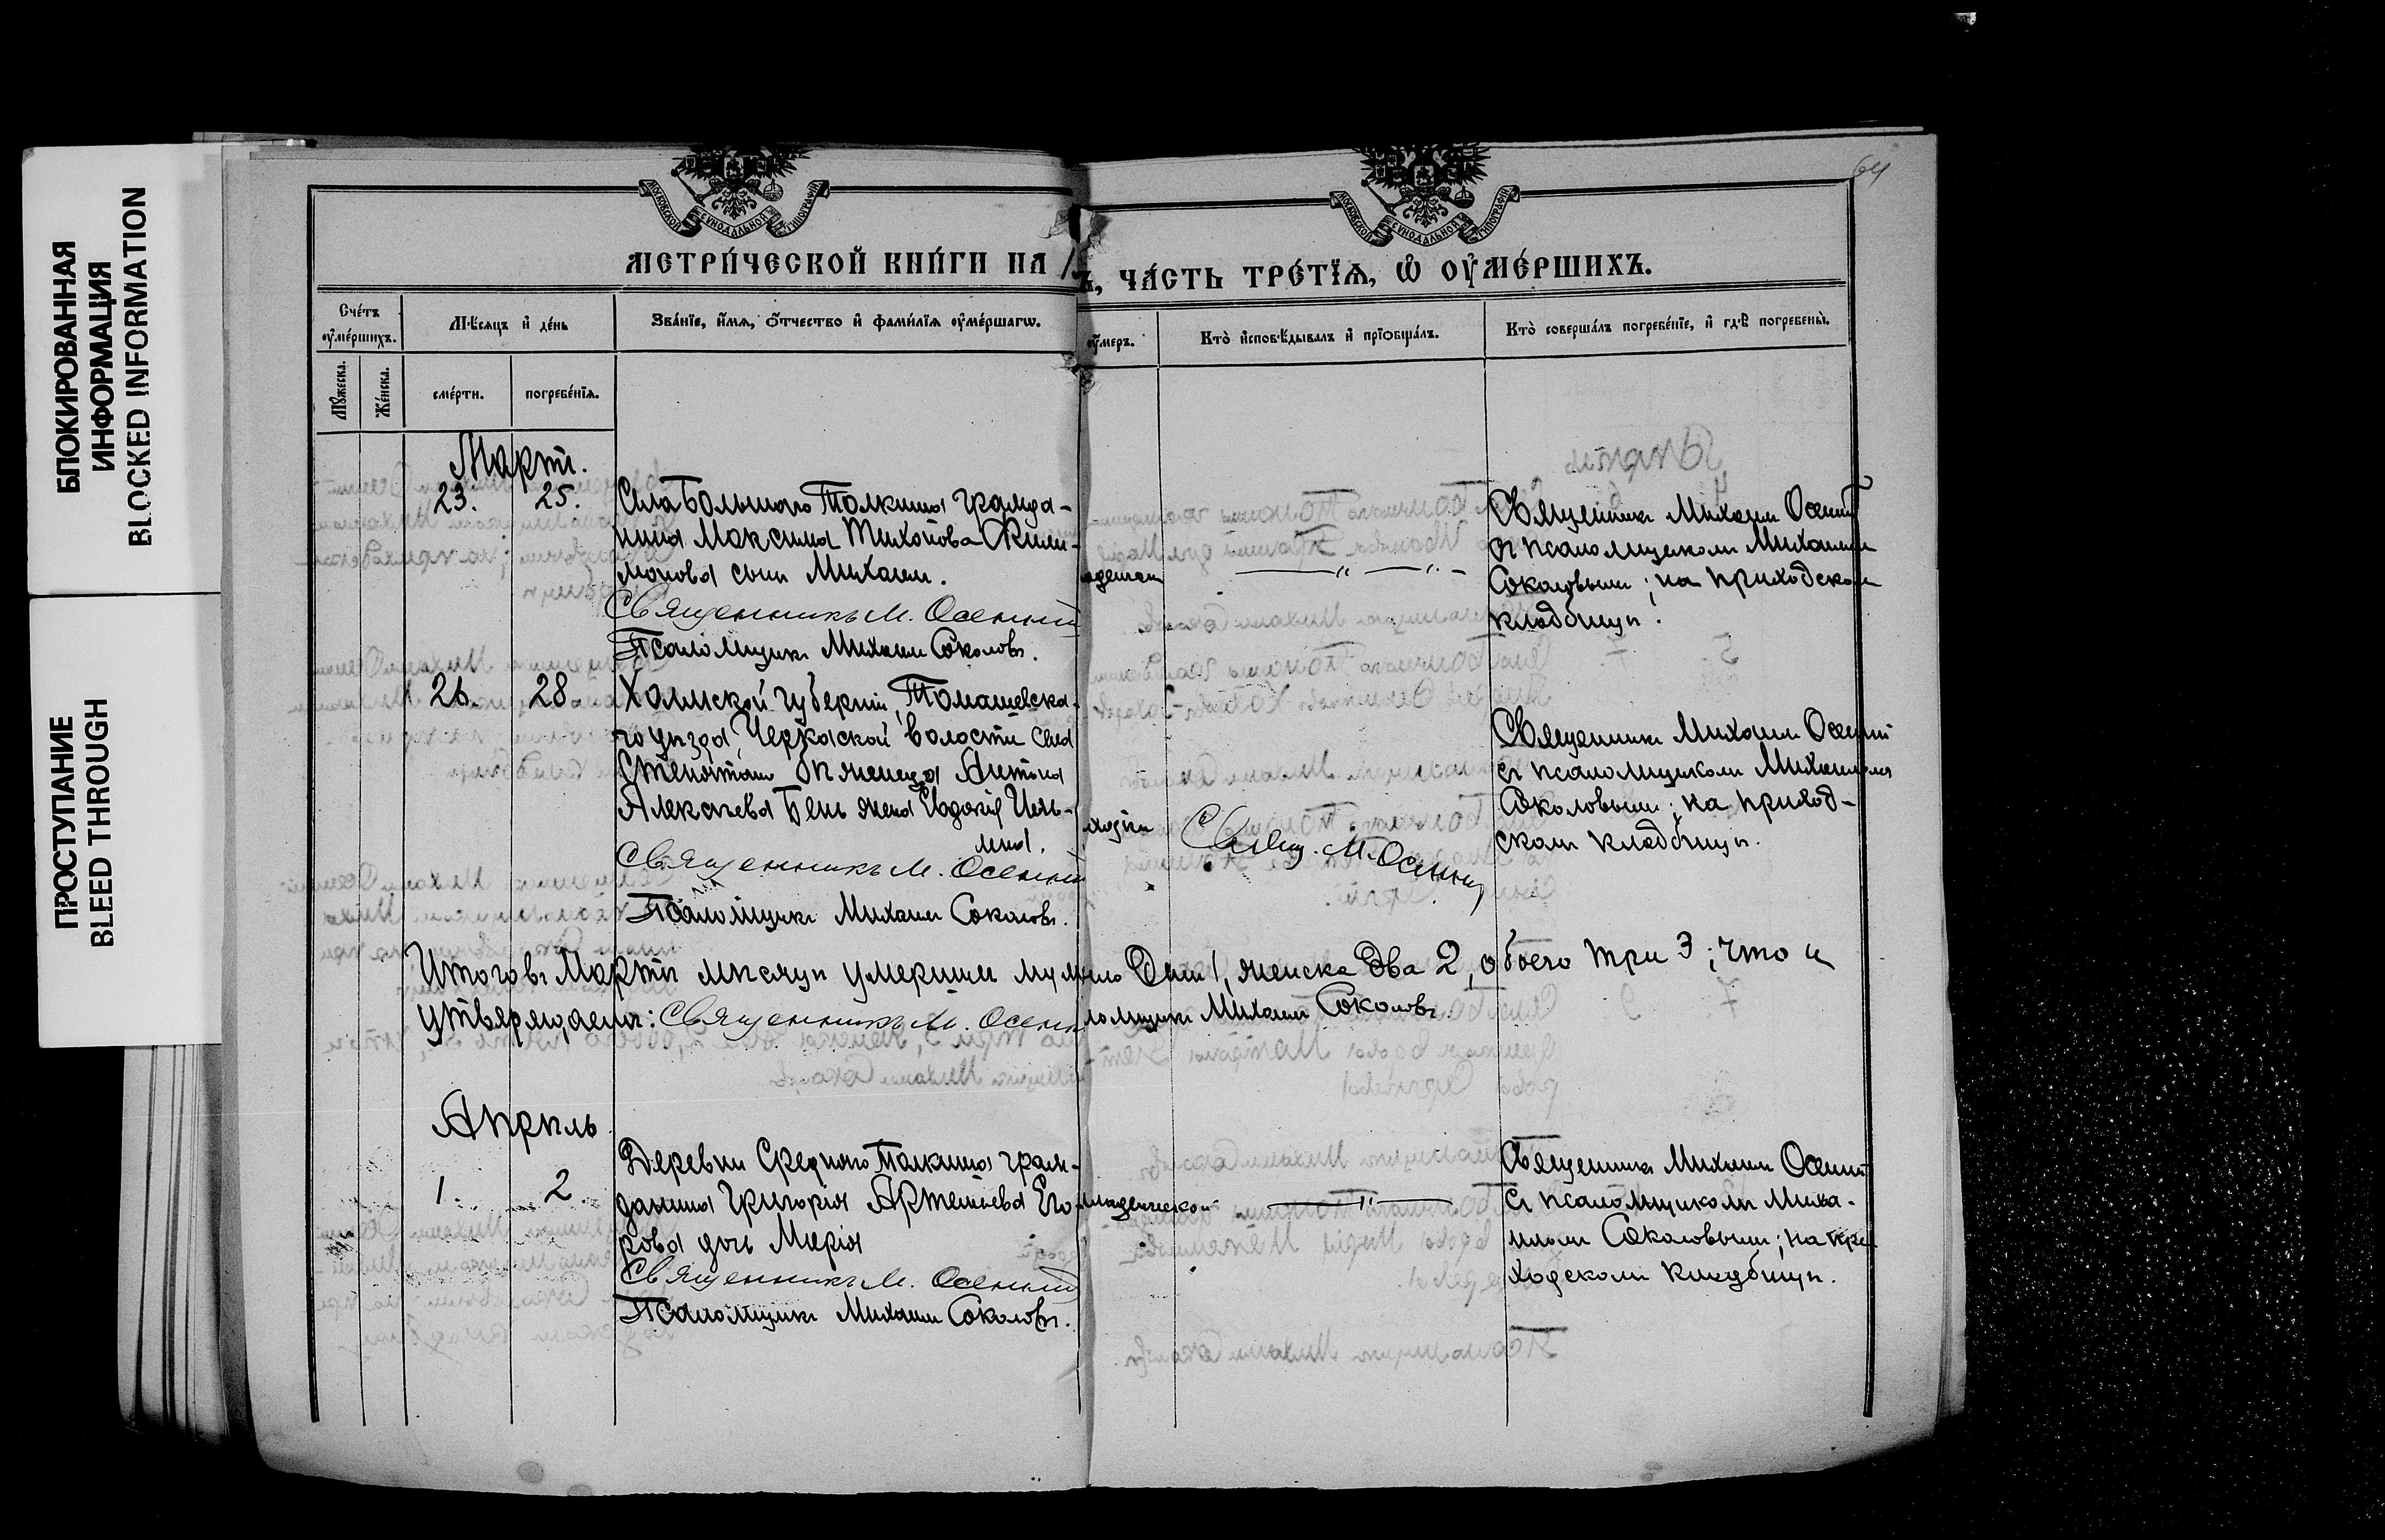 БЛОКИРОВАННАЯ
ИНФОРМАЦИЯ
BLOCKED INFORMATION
ПРОСТУПАНИЕ
BLEED THROUGH
64
МОСКОВСКОЙ СѴНОДАЛЬНОЙ ТИПОГРАФІИ
МОСКОВСКОЙ СѴНОДАЛЬНОЙ ТИПОГРАФІИ
МЕТРИ́ЧЕСКОЙ КНИ́ГИ НА
Ъ, ЧА́СТЬ ТРЕ́ТЇѦ, Ѽ ОУ҆МЕ́РШИХЪ.
Сче́тъ
оу҆ме́ршихъ.
Мꙋ́жеска.
Же́нска.
Мѣ́сѧцъ и҆ де́нь
сме́рти.
погребе́нїѧ.
Зва́нїе, и҆́мѧ, ѻ҆́тчество и҆ фами́лїѧ оу҆ме́ршагѡ.
оу҆́меръ.
Кто̀ и҆сповѣ́дывалъ и҆ прїѡбща́лъ.
Кто̀ соверша́лъ погребе́нїе, и҆ гдѣ̀ погребены̀.
Мартъ.
23. 25.
Села Большаго Толкиша гражда-
нина Максима Тихонова
сынъ Михаилъ.
Священникъ М. Осенний
Псаломщикъ Михаилъ Соколовъ.
Священникъ Михаилъ Осенний
съ псаломщикомъ Михаиломъ
Соколовымъ; на приходскомъ
кладбищѣ.
26. 28.
Холмской губерніи, Томашевска-
го уѣзда, волости села
бѣженца Антона
Алексѣева Бень жена Евдокія
Священникъ М. Осенний
Псаломщикъ Михаилъ Соколовъ.
Свящ. М. Осенний
Священникъ Михаилъ Осенний
съ псаломщикомъ Михаиломъ
Соколовымъ; на приход-
скомъ кладбищѣ.
Итого въ Мартѣ мѣсяцѣ умершихъ Одинъ 1, женска два 2, обоего три 3; что и
утверждаемъ: Священникъ М. Осенн ломщикъ Михаилъ Соколовъ.
Апрѣль
1. 2.
Деревни Средняго Толкиша граж-
данина Григорія Артемьева Его-
рова дочь Марія
Священникъ М. Осенний
Псаломщикъ Михаилъ Соколовъ.
младенческой
Священникъ Михаилъ Осенний
съ псаломщикомъ Миха-
иломъ Соколовымъ; на при-
ходскомъ кладбищѣ.